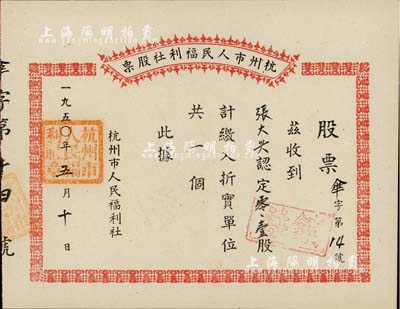 上海陽明拍賣
杭州市人民福利社股票
股票
字第14號
茲收到
張大炎認定零壹股
計繳入折實單位
共一個
此據
杭州市人民福利社
一九五〇年五月十日
杭州市
人民福
利社
字第十四號
上海陽明拍賣